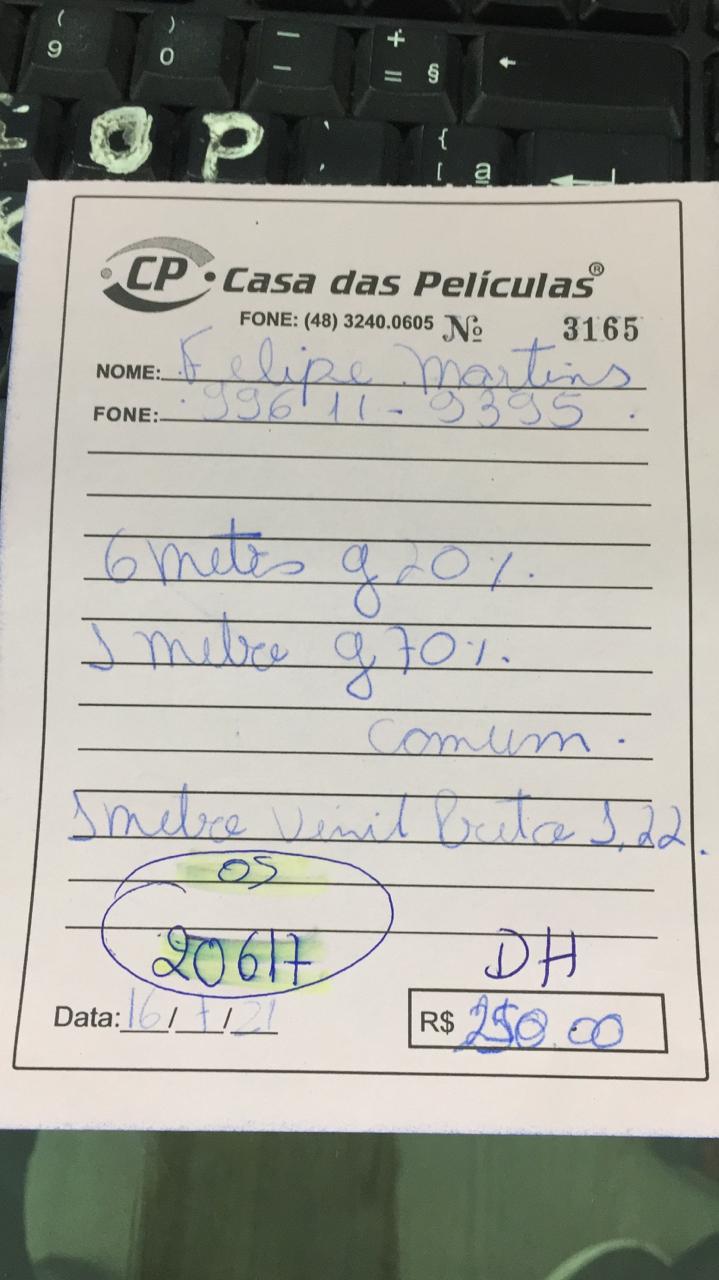 ( 9
) 0
— –
+ = §
←
O P
` ´
{ [ ª
CP • Casa das Películas®
FONE: (48) 3240.0605 Nº 3165
NOME: Felipe Martins
FONE: 99611-9395
6 metrs g 20%.
1 metro g 70%.
comum.
1 metro Vinil Preto 1,22.
OS
20617
DH
Data: 16/7/21
R$ 250.00